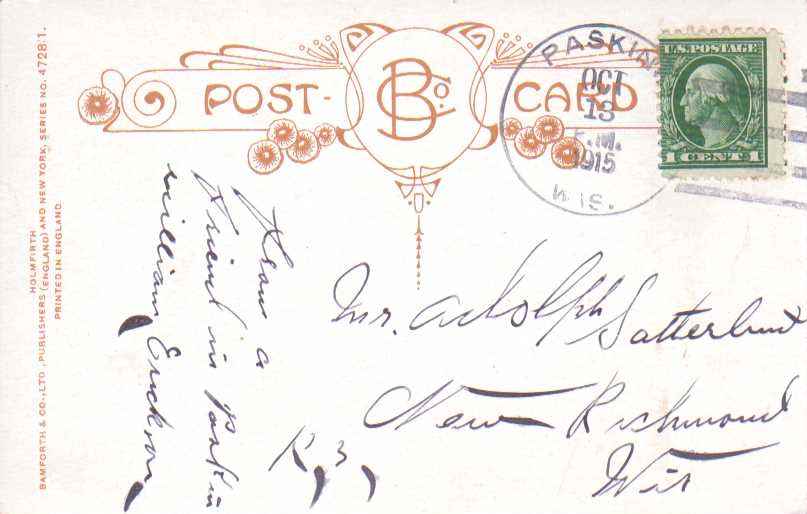 POST-
BCo.
CARD
PASKIN
OCT
13
1915
WIS.
U.S. POSTAGE
1 CENT 1
From a
Friend in Paskin
William Erickson
Mr. Adolph Satterlund
New Richmond
R, 3,
Wis
HOLMFIRTH
BAMFORTH & CO., LTD., PUBLISHERS (ENGLAND) AND NEW YORK, SERIES NO. 4728/1.
PRINTED IN ENGLAND.